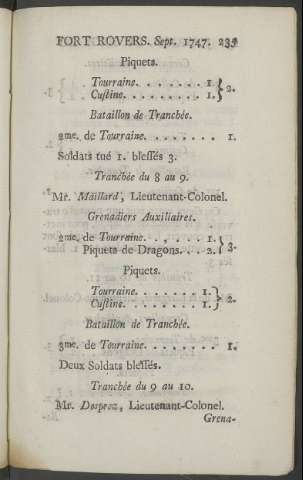 FORT ROVERS. Sept. 1747. 235
Piquets.
Tourraine. . . . . . . . 1. } 2.
Cuſtine. . . . . . . . . 1.
Bataillon de Tranchée.
2me. de Tourraine. . . . . . . . 1.
Soldats tué 1. bleſſés 3.
Tranchée du 8 au 9.
Mr. Maillard, Lieutenant-Colonel.
Grenadiers Auxiliaires.
2me. de Tourraine. . . . . . 1. } 3.
Piquets de Dragons. . . 2.
Piquets.
Tourraine. . . . . . . . 1. } 2.
Cuſtine. . . . . . . . . 1.
Bataillon de Tranchée.
3me. de Tourraine. . . . . . . . 1.
Deux Soldats bleſſés.
Tranchée du 9 au 10.
Mr. Desprez, Lieutenant-Colonel.
Grena-